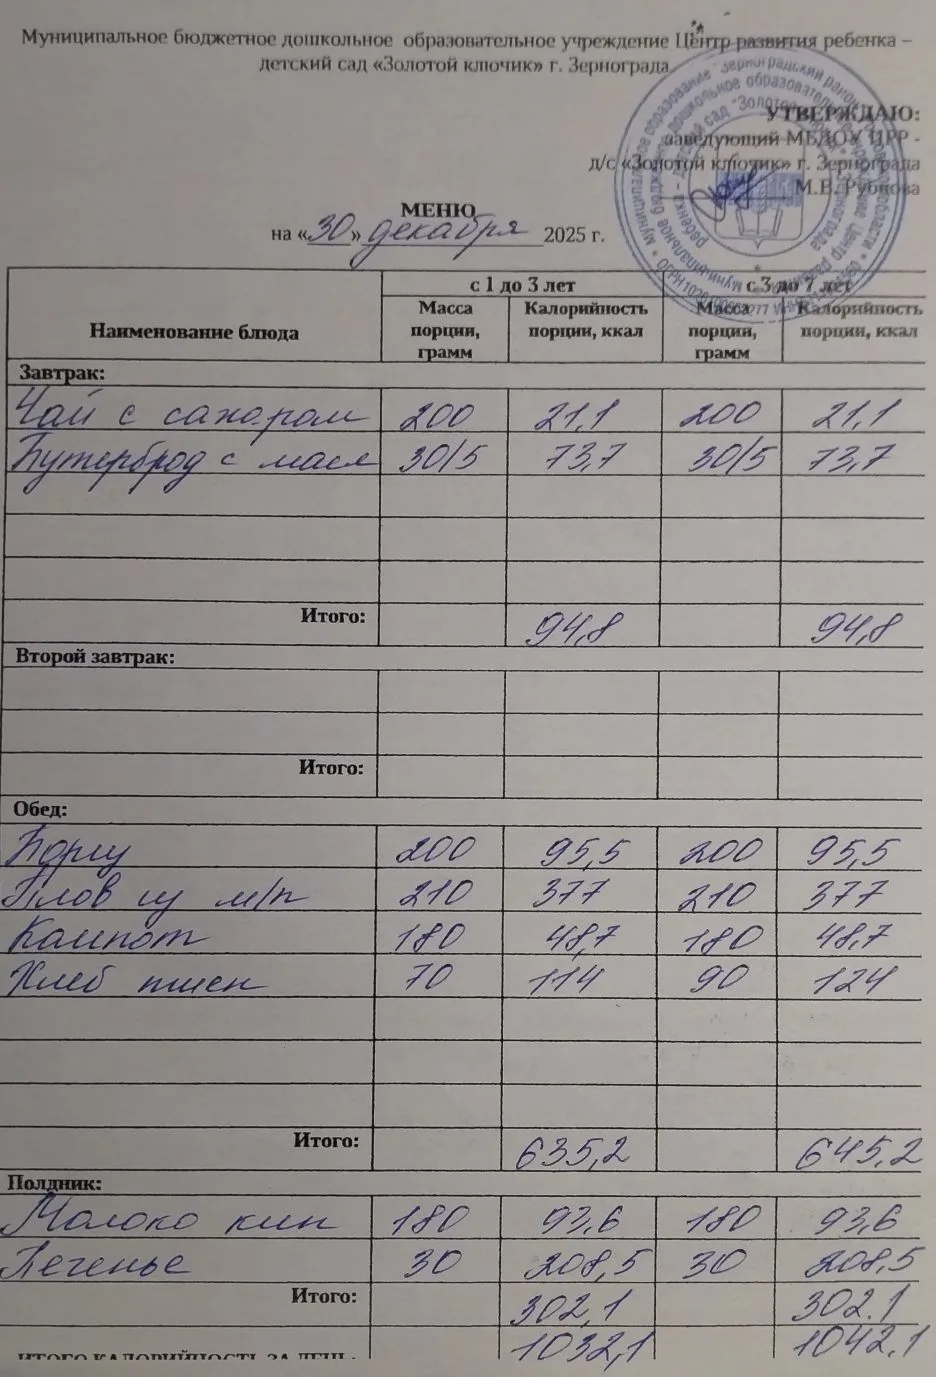 Муниципальное бюджетное дошкольное образовательное учреждение Центр развития ребенка –
детский сад «Золотой ключик» г. Зернограда
УТВЕРЖДАЮ:
заведующий МБДОУ ЦРР -
д/с «Золотой ключик» г. Зернограда
М.В. Рубцова
МЕНЮ
на «30» декабря 2025 г.
Наименование блюда с 1 до 3 лет с 3 до 7 лет
Масса порции, грамм Калорийность порции, ккал Масса порции, грамм Калорийность порции, ккал
Завтрак:
Чай с сахаром 200 21,1 200 21,1
Бутерброд с масл 30/5 73,7 30/5 73,7
Итого: 94,8 94,8
Второй завтрак:
Итого:
Обед:
Борщ 200 95,5 200 95,5
Плов из м/п 210 377 210 377
Компот 180 48,7 180 48,7
Хлеб пшен 70 114 90 124
Итого: 635,2 645,2
Полдник:
Молоко кип 180 93,6 180 93,6
Печенье 30 208,5 30 208,5
Итого: 302,1 302.1
ИТОГО КАЛОРИЙНОСТЬ ЗА ДЕНЬ: 1032,1 1042.1